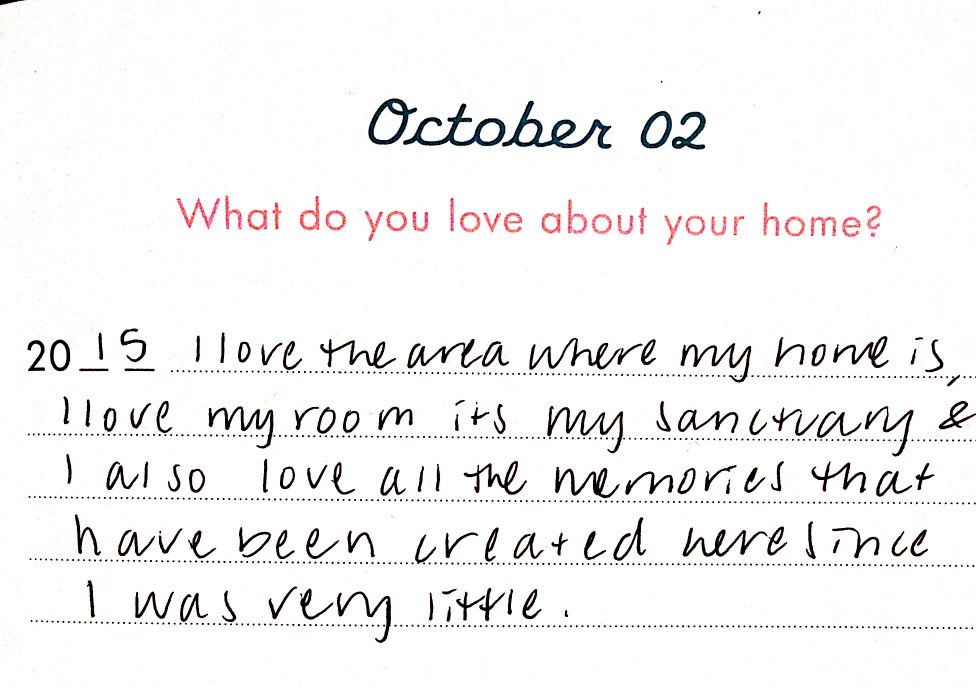 October 02
What do you love about your home?
2015 I love the area where my home is,
I love my room its my sanctuary &
I also love all the memories that
have been created here since
I was very little.